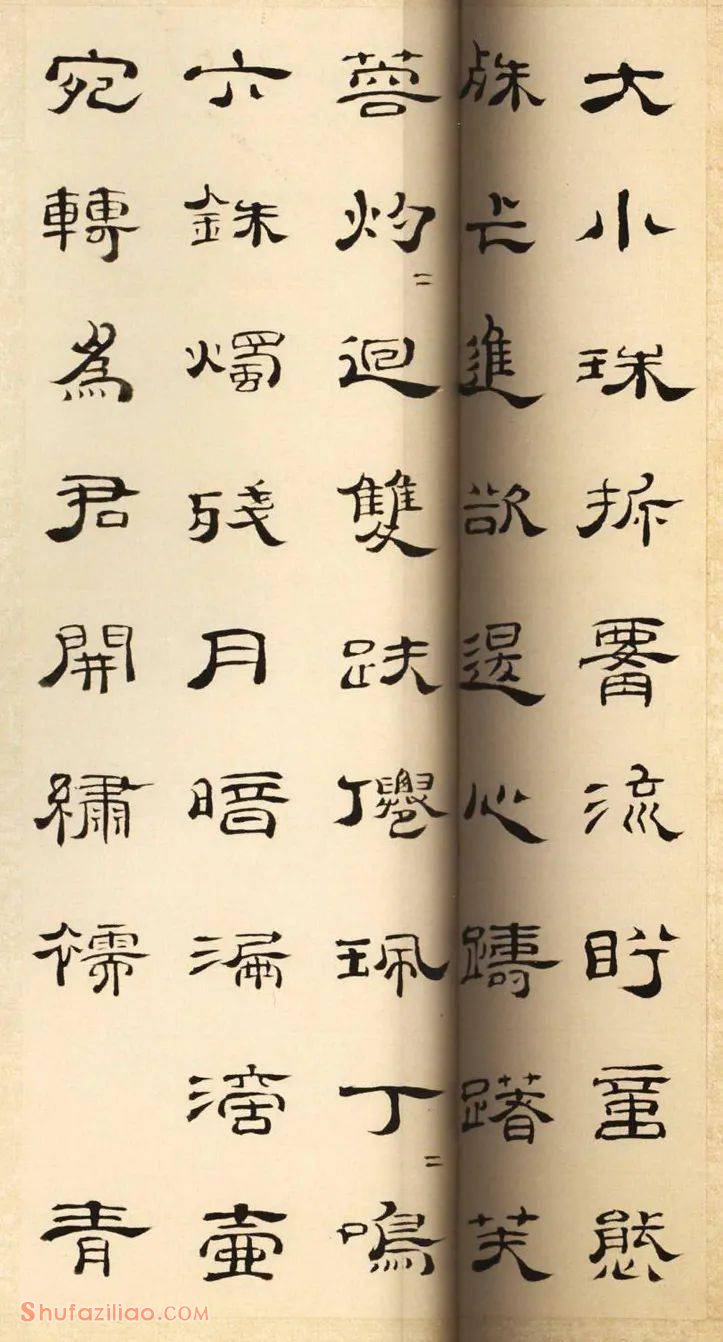 大小珠拆流盱童態
進欲退心躊躇芙
蓉灼〻迴雙趺珮丁〻鳴
六銖燭殘月暗漏滴壺
宛轉爲君開繡襦 青
Shufaziliao.COM